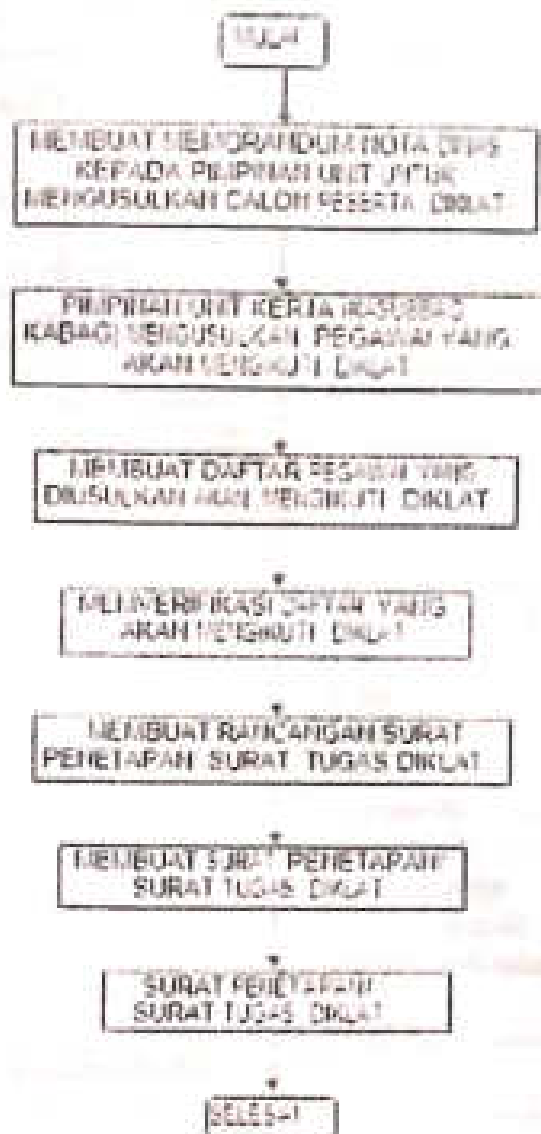 MULAI
MEMBUAT MEMORANDUM NOTA DINAS
KEPADA PIMPINAN UNIT UNTUK
MENGUSULKAN CALON PESERTA DIKLAT
PIMPINAN UNIT KERJA (KASUBBAG
KABAG) MENGUSULKAN PEGAWAI YANG
AKAN MENGIKUTI DIKLAT
MEMBUAT DAFTAR PEGAWAI YANG
DIUSULKAN AKAN MENGIKUTI DIKLAT
MEMVERIFIKASI DAFTAR YANG
AKAN MENGIKUTI DIKLAT
MEMBUAT RANCANGAN SURAT
PENETAPAN SURAT TUGAS DIKLAT
MEMBUAT SURAT PENETAPAN/
SURAT TUGAS DIKLAT
SURAT PENETAPAN/
SURAT TUGAS DIKLAT
SELESAI